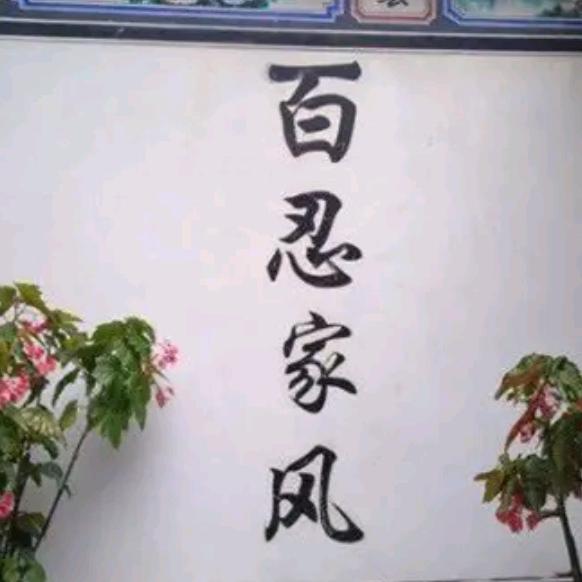 百忍家风